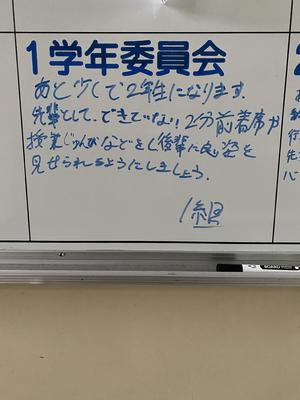 1学年委員会
あと少しで2年生になります。
先輩として、できていない2分前着席や
授業じゅんびなどをし後輩に良い姿を
見せられるようにしましょう。
1組